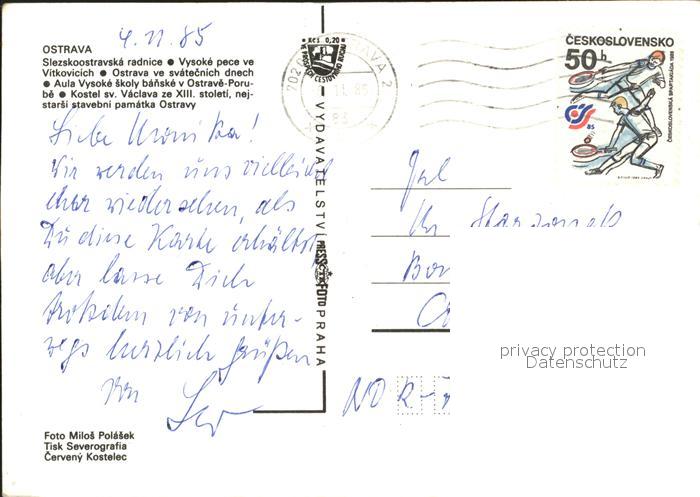 4. 11. 85
OSTRAVA
Slezskoostravská radnice ● Vysoké pece ve
Vítkovicích ● Ostrava ve svátečních dnech
● Aula Vysoké školy báňské v Ostravě-Poru-
bě ● Kostel sv. Václava ze XIII. století, nej-
starší stavební památka Ostravy
Liebe Monika!
Wir werden uns vielleicht
eher wiedersehen, als
Du diese Karte erhältst,
aber lasse Dich
trotzdem von unter-
wegs herzlich grüßen
von
Foto Miloš Polášek
Tisk Severografia
Červený Kostelec
VYDAVATELSTVÍ PRESSFOTO PRAHA
Kčs 0,20
OSTRAVA 2
ČESKOSLOVENSKO
50 h
85
ČESKOSLOVENSKÁ SPARTAKIÁDA 1985
privacy protection
Datenschutz